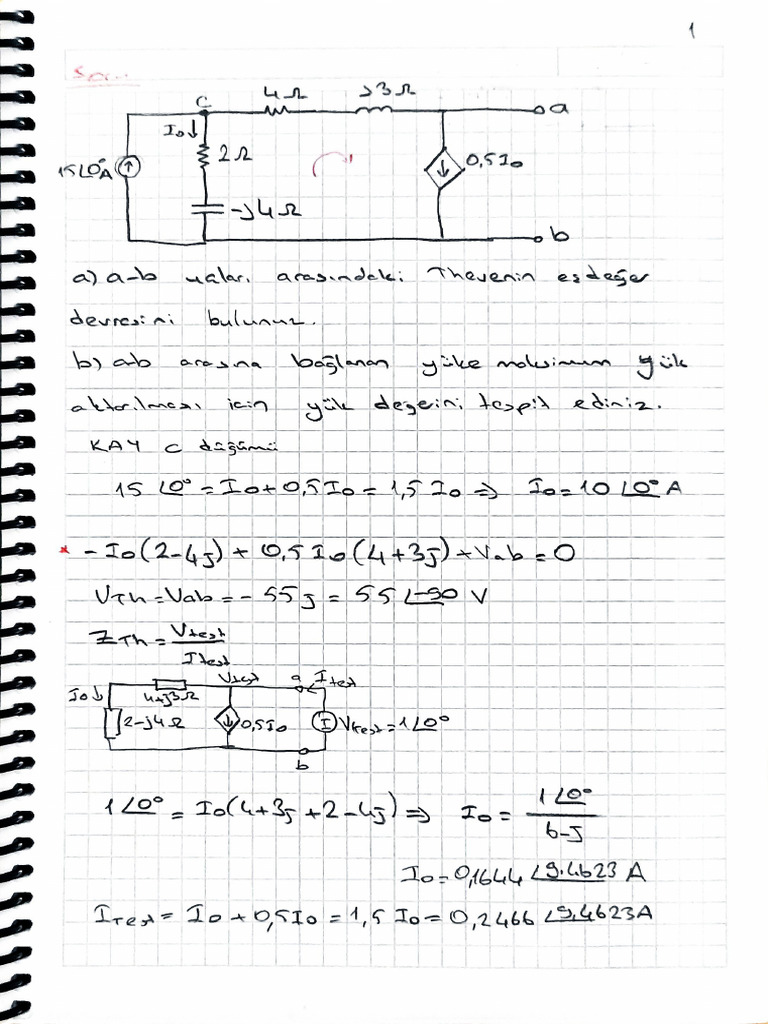 1
Soru
C
4Ω
j3Ω
a
Io↓
15∠0°A
2Ω
0,5Io
-j4Ω
b
a) a-b uçları arasındaki Thevenin eşdeğer
devresini bulunuz.
b) a-b arasına bağlanan yüke maksimum yük
aktarılması için yük değerini tespit ediniz.
KAY c düğümü
15∠0° = Io + 0,5Io = 1,5Io ⇒ Io = 10∠0° A
* -Io(2-4j) + 0,5Io(4+3j) + Vab = 0
VTh = Vab = -55j = 55∠-90 V
ZTh = Vtest / Itest
Vtest a Itest
Io↓ 4+j3Ω
2-j4Ω 0,5Io Vtest = 1∠0°
b
1∠0° = Io(4+3j+2-4j) ⇒ Io = 1∠0° / 6-j
Io = 0,1644∠9.4623 A
ITest = Io + 0,5Io = 1,5Io = 0,2466∠9,4623A